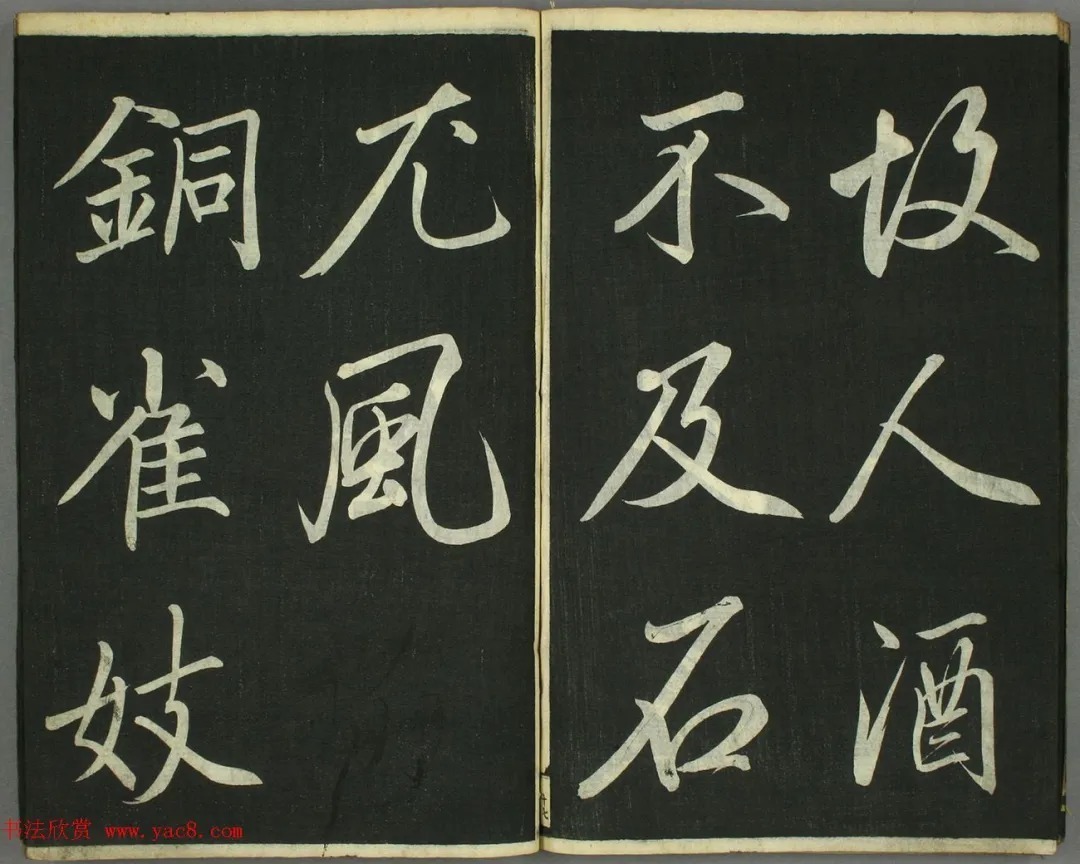 故人酒
不及石
尤風
銅雀妓
书法欣赏 www.yac8.com